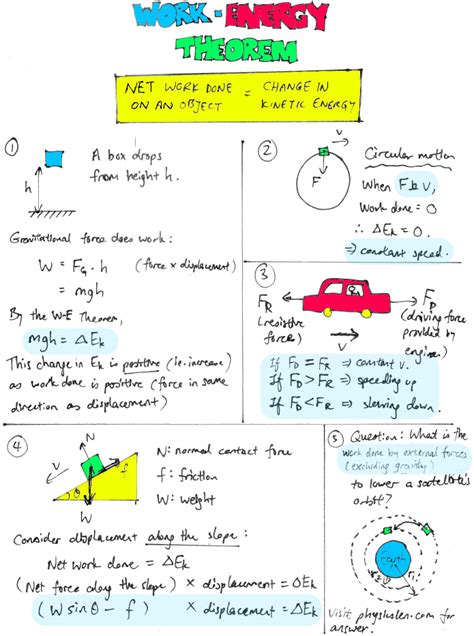 WORK - ENERGY
THEOREM
NET WORK DONE = CHANGE IN
ON AN OBJECT KINETIC ENERGY
①
A box drops
from height h.
h
Gravitational force does work:
W = FG . h (force x displacement)
= mgh
By the W-E Theorem,
mgh = ΔEk
This change in Ek is positive (ie. increase)
as work done is positive (force in same
direction as displacement)
②
v
F
Circular motion
When F ⊥ v,
Work done = 0
∴ ΔEk = 0.
⇒ constant speed.
③
FR
(resistive
force)
FD
(driving force
provided by
engine)
If FD = FR ⇒ constant v.
If FD > FR ⇒ speeding up
If FD < FR ⇒ slowing down.
④
N
v
f
θ
W
N: normal contact force
f: friction
W: weight
Consider displacement along the slope:
Net work done = ΔEk
(Net force along the slope) x displacement = ΔEk
(W sin θ - f) x displacement = ΔEk
⑤ Question: What is the
work done by external forces
(excluding gravity)
to lower a satellite's
orbit?
Earth
Visit physicslens.com for
answer.